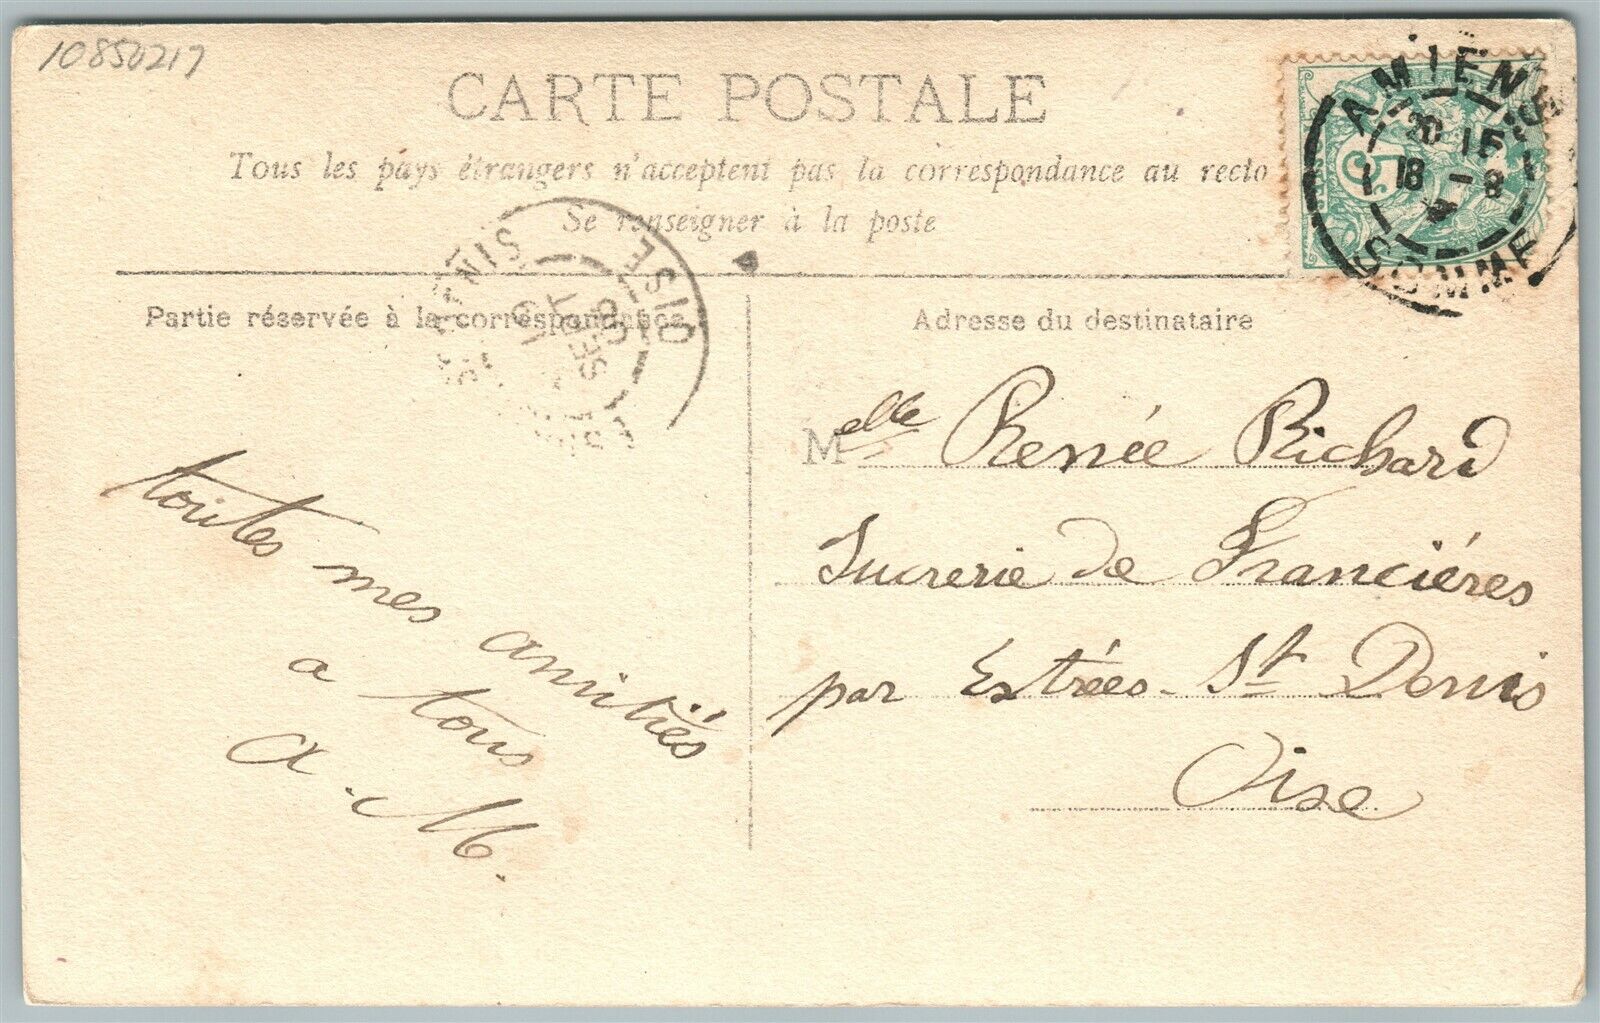 10850217
CARTE POSTALE
Tous les pays étrangers n'acceptent pas la correspondance au recto
Se renseigner à la poste
AMIENS
20 15
18 - 8
SOMME
5
OISE
Partie réservée à la correspondance
toutes mes amitiés
a tous
A. M.
Adresse du destinataire
Melle Renée Richard
Sucrerie de Franciéres
par Estrées-St Denis
Oise